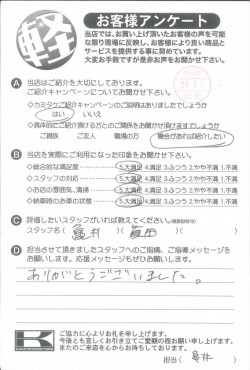 軽
お客様アンケート
当店では、お買い上げ頂いたお客様の声を可能
な限り現場に反映し、お客様により良い商品と
サービスを提供する事に努めています。
大変お手数ですが是非お声をお聞かせ下さい。
A 当店はご紹介を大切にしております。
ご紹介キャンペーンについてお聞かせ下さい。
はい いいえ
ご親族 ご友人 職場の方 機会があれば紹介したい
B 当店を実際にご利用になった印象をお聞かせ下さい。
◇総合的な満足度 5.大満足 4.満足 3.ふつう 2.やや不満 1.不満
◇スタッフの対応 5.大満足 4.満足 3.ふつう 2.やや不満 1.不満
◇お店の雰囲気、清掃 5.大満足 4.満足 3.ふつう 2.やや不満 1.不満
◇納車時のお車の状態 5.大満足 4.満足 3.ふつう 2.やや不満 1.不満
C 評価したいスタッフがいれば教えてください。
スタッフ名( 亀井 )( 真田 )
D 担当させて頂きましたスタッフへのご指摘、ご指導メッセージを
お願いします。応援メッセージもぜひお願いします。
ありがとうございました。
K
ご協力に心よりお礼を申し上げます。
今後とも宜しくお引き立てご愛顧の程お願い申し上げます。
またのご来店を心からお待ちしております。
担当( 亀井 )